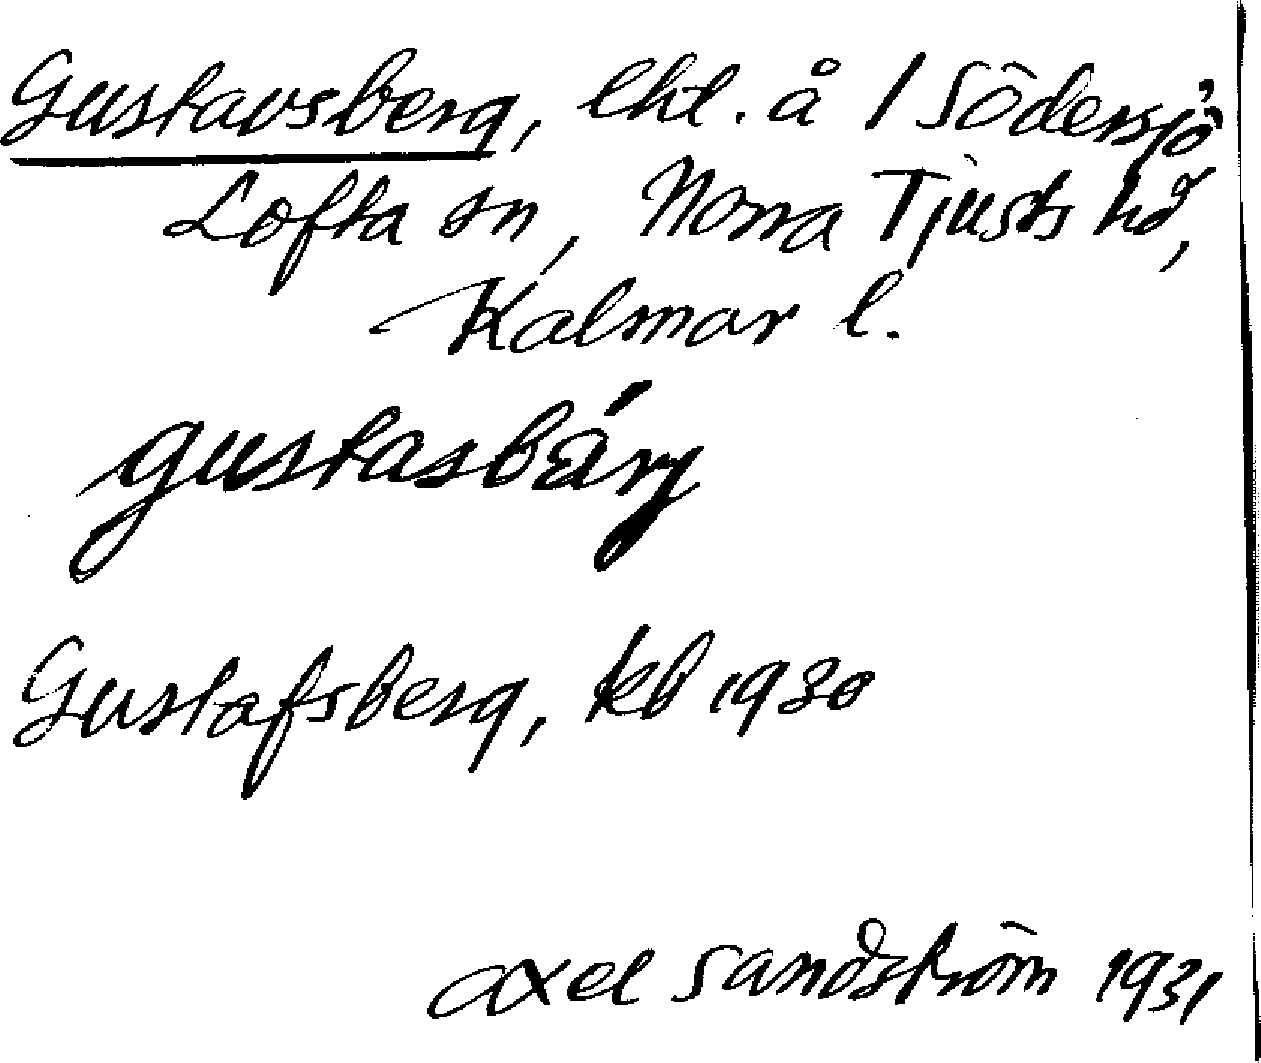 Gustavsberg, lht. å 1 Södersjö
Lofta sn, Norra Tjusts hd,
Kalmar l.
gustasbärj
Gustafsberg, kb 1930
Axel Sandström 1931